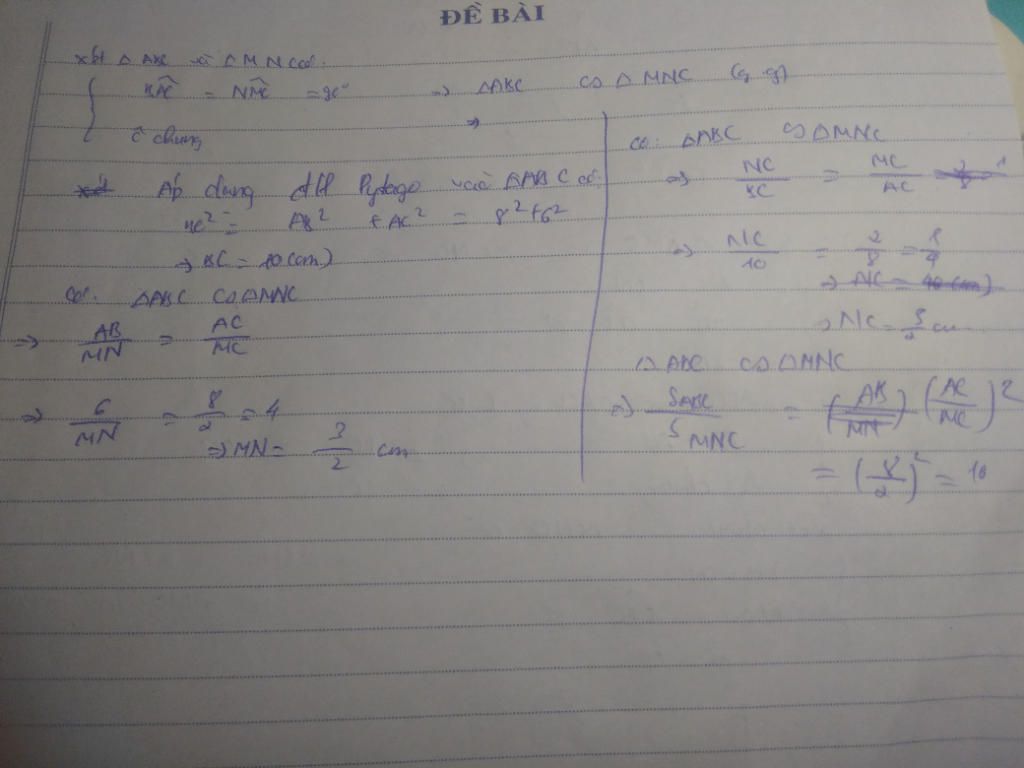 ĐỀ BÀI
xét △ ABC và △ MNC có:
BÂC = NMC = 90° => △ABC ∽ △ MNC (g.g)
Ĉ chung =>
Áp dụng đll Pytago vào △ABC có:
BC² = AB² + AC² = 8² + 6²
=> BC = 10 (cm)
Có: △ABC ∽ △MNC
=> AB/MN = AC/MC
=> 6/MN = 8/2 = 4
=> MN = 3/2 cm
Có: △ABC ∽ △MNC
=> NC/BC = MC/AC
=> NC/10 = 2/8 = 1/4
=> NC = 10 (cm)
=> NC = 5/2 cm
△ ABC ∽ △MNC
=> S ABC / S MNC = (AB/MN) (AC/MC)²
= (8/2)² = 16